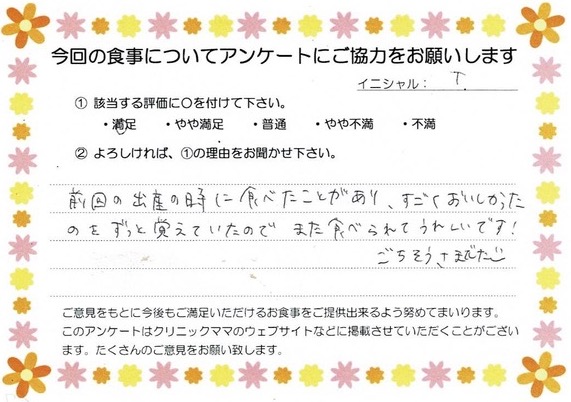 今回の食事についてアンケートにご協力をお願いします
イニシャル： T.
① 該当する評価に〇を付けて下さい。
・満足 ・やや満足 ・普通 ・やや不満 ・不満
② よろしければ、①の理由をお聞かせ下さい。
前回の出産の時に食べたことがあり、すごくおいしかった
のをずっと覚えていたので また食べられてうれしいです！
ごちそうさまでした
ご意見をもとに今後もご満足いただけるお食事をご提供出来るよう努めてまいります。
このアンケートはクリニックママのウェブサイトなどに掲載させていただくことがござい
ます。たくさんのご意見をお願い致します。